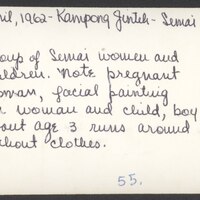 ril, 1962 - Kampong Jinteh - Semai
oup of Semai women and
ildren. Note pregnant
oman, facial painting
n woman and child, boy
out age 3 runs around
thout clothes.
55.